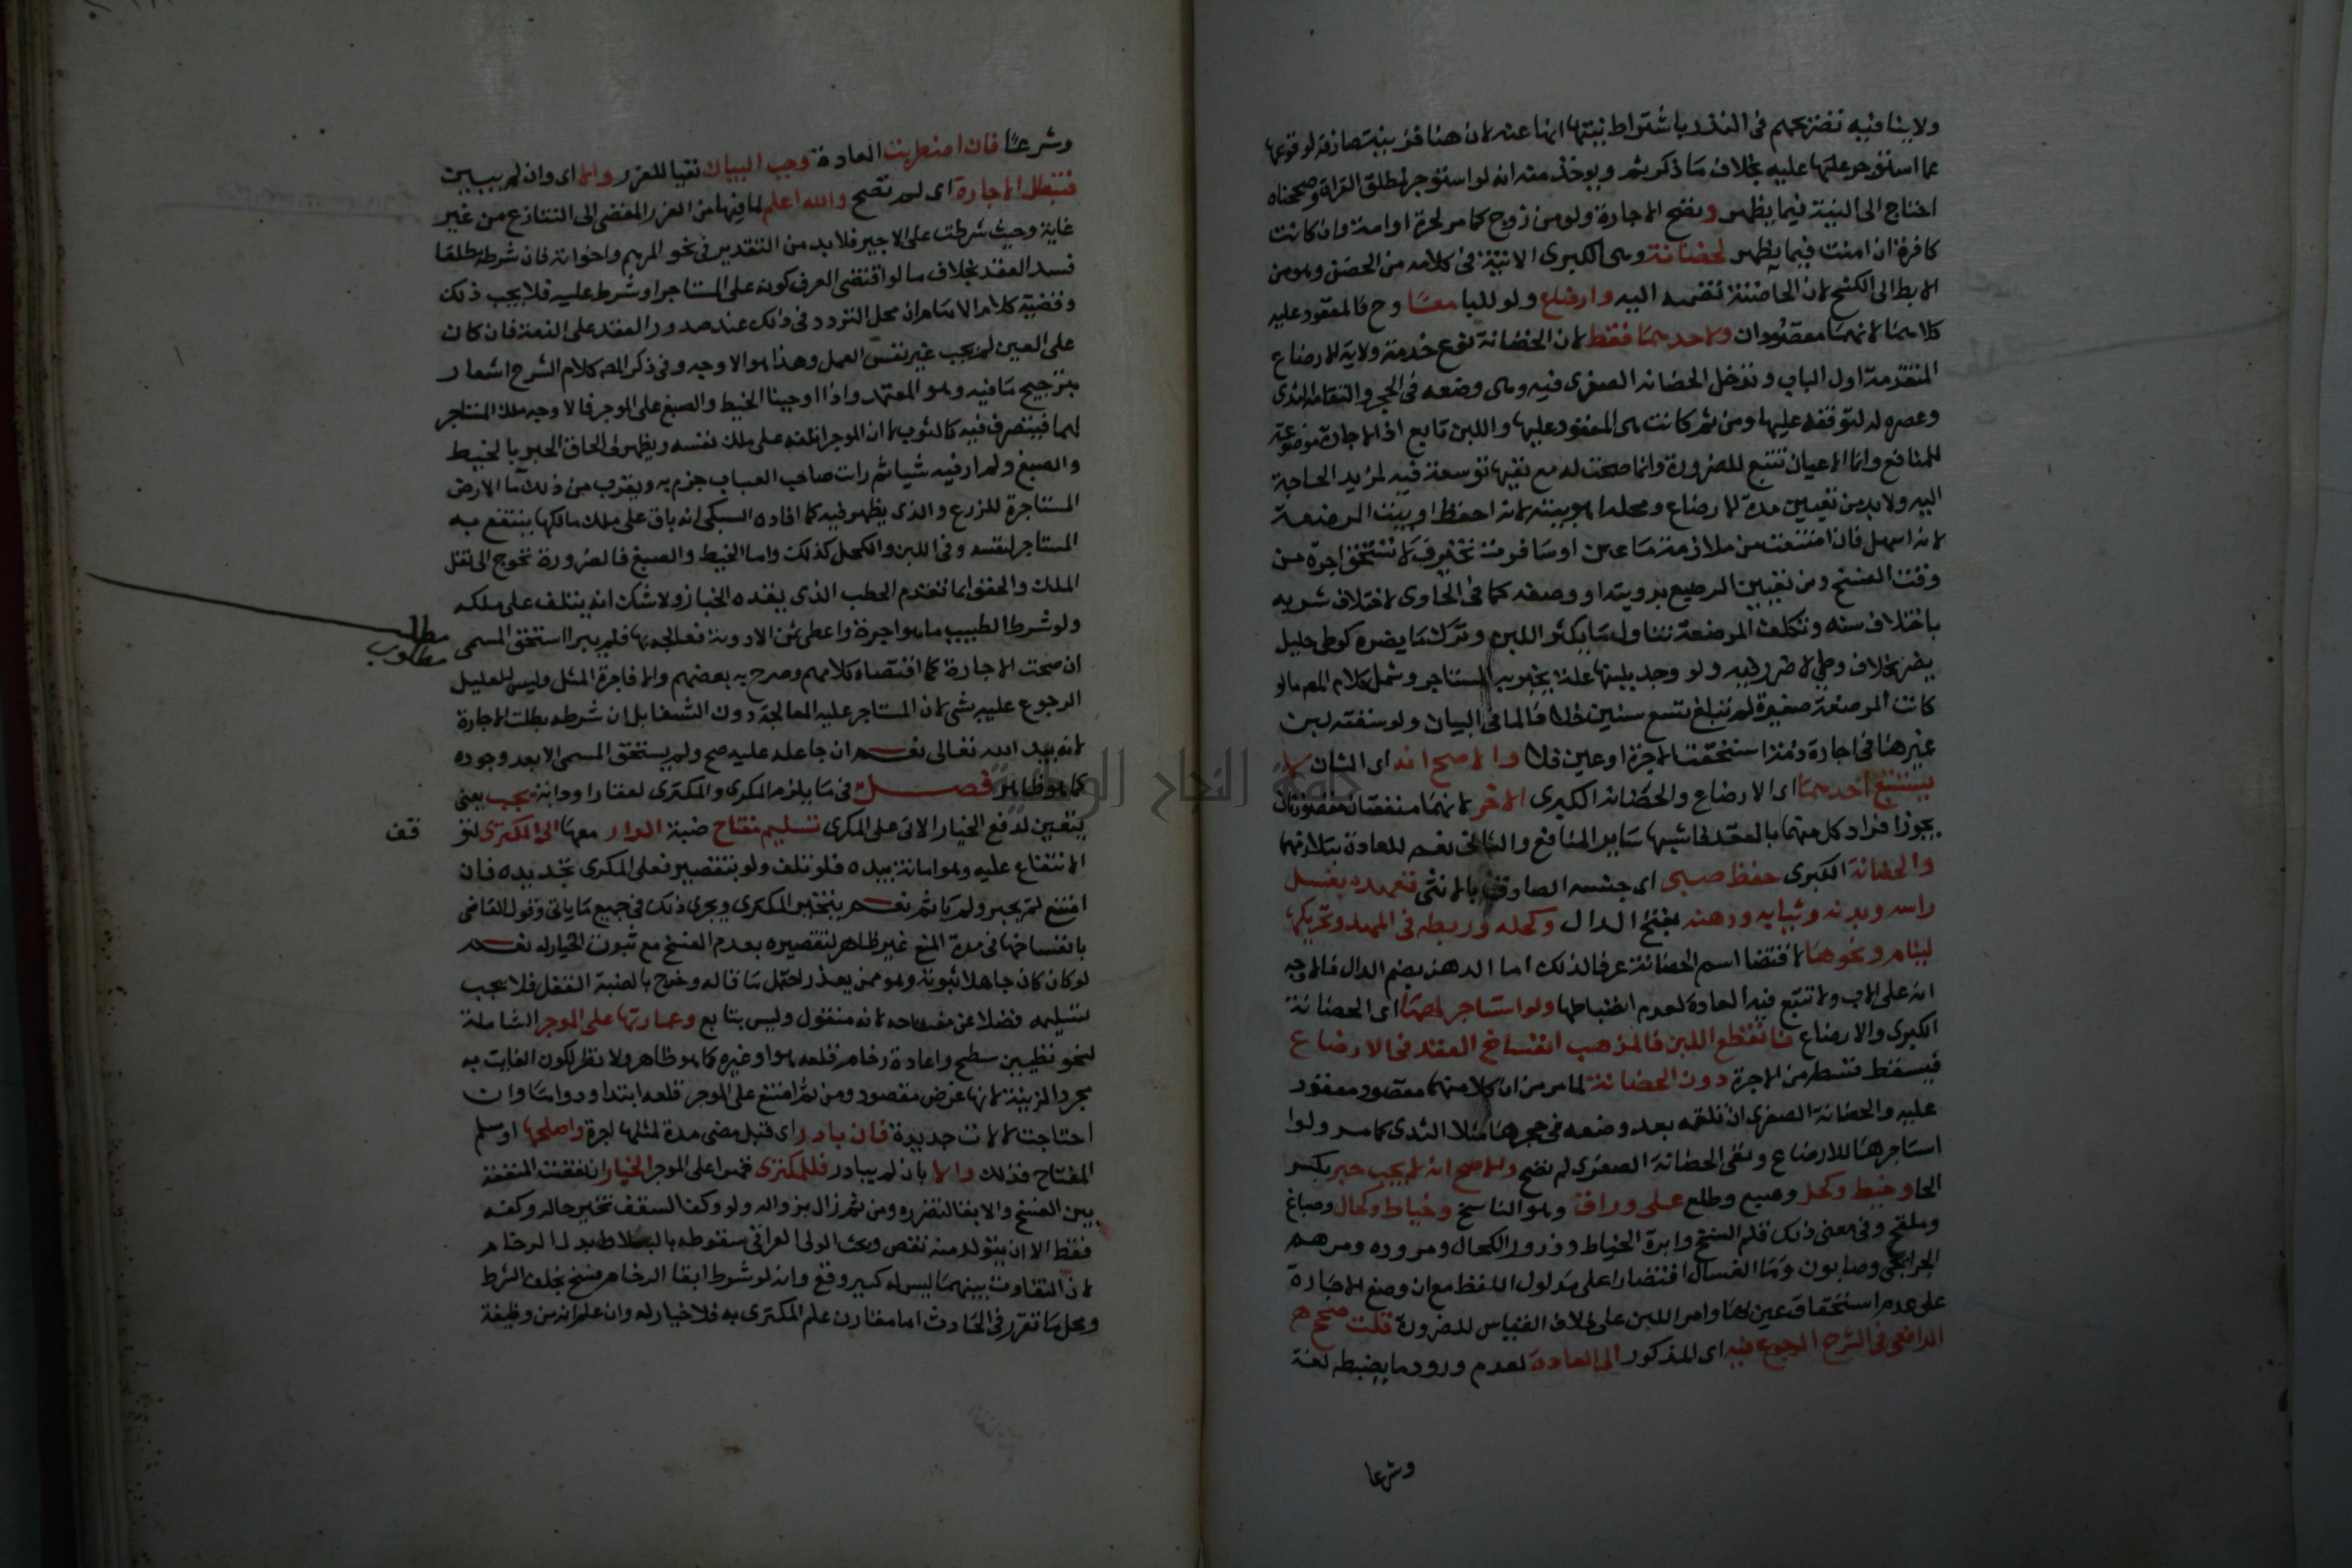 ولا ينافيه تصريحهم فى النذر باشتراط نيتها ايضا عنه لان هنا قرينة صارفة لوقوعها
عما استؤجر عليها عليه بخلاف ما ذكر ثم ويؤخذ منه انه لو استؤجر لمطلق القراة وصححناه
احتاج الى النية فيما يظهر وتصح الاجارة ولو من زوج كما مر لحرة او امة وان كانت
كافرة ان امنت فيما يظهر لحضانة وهى الكبرى الاتية فى كلامه من الحضن وهو من
الابط الى الكشح لان الحاضنة تضمه اليه وارضاع ولو للبا معًا وح فالمعقود عليه
كلاهما لانهما مقصودان ولاحدهما فقط لان الحضانة نوع خدمة ولاية الارضاع
المتقدمة اول الباب وتدخل الحضانه الصغرى فيه وهى وضعه فى الحجر والتقامه الثدى
وعصره له لتوقفه عليها ومن ثم كانت هى المعقود عليها واللبن تابع اذ الاجارة موضوعة
للمنافع وانما الاعيان تتبع للضرورة وانما صحت له مع نفيها توسعة فيه لمزيد الحاجة
اليه ولا بد من تعيين مدة الارضاع ومحله اهو بيته لانه احفظ او بيت المرضعة
لانه اسهل فان امتنعت من ملازمة ما عين او سافرت تخير فلا تستحق اجرة من
وقت الفسخ ومن تعيين الرضيع برويته او وصفه كما فى الحاوى لاختلاف شربه
باختلاف سنه وتكلف المرضعة تناول ما يكثر اللبن وترك ما يضره كوطى حليل
يضر بخلاف وطى لا ضرر فيه ولو وجد بلبنها علة يخير به المستاجر وشمل كلام المص ما لو
كانت المرضعة صغيرة لم تبلغ تسع سنين خلافا لما فى البيان ولو سقته لبن
غيرها فى اجارة ذمة استحقت الاجرة او عين فلا والاصح انه اى الشان لا
يستتبع احدهما اى الارضاع والحضانه الكبرى الاخر لانهما منفعتان مقصودتان
يجوز افراد كل منهما بالعقد فاشبها ساير المنافع والثانى نعم للعادة بتلازمهما
والحضانة الكبرى حفظ صبى اى جنسه الصادق بالانثى تعهده بغسل
راسه وبدنه وثيابه ودهنه بفتح الدال وكحله وربطه فى المهد وتحريكه
لينام ونحوها لاقتضا اسم الحضانة عرفا لذلك اما الدهن بضم الدال فالاوجه
انه على الاب ولا تتبع فيه العادة لعدم انضباطها ولو استاجر لهما اى الحضانة
الكبرى والارضاع فانقطع اللبن فالمذهب انفساخ العقد فى الارضاع
فيسقط قسط من الاجرة دون الحضانة لما مر من ان كلا منهما مقصود معقود
عليه والحضانة الصغرى ان تلقمه بعد وضعه فى حجرها مثلا الثدى كما مر ولوا
استاجرها للارضاع ونفى الحضانة الصغرى لم تصح والاصح انه لا يجب حبر بكسر
الحا وخيط وكحل وصبغ وطلع على وراق وهو الناسخ وخياط وكحال وصباغ
وملقح وفى معنى ذلك قلم النسخ وابرة الخياط وذرور الكحال ومروده ومرهم
الجرايحى وصابون وما الغسال اقتضارا على مدلول اللفظ مع ان وضع الاجارة
على عدم استحقاق عين بها وامر اللبن على خلاف القياس للضرورة قلت صحح
الرافعى فى الشرح الرجوع فيه اى المذكور الى العادة لعدم ورود ما يضبطه لغة
وشرعا
وشرعًا فان اضطربت العادة وجب البيان نفيا للغرر والا اى وان لم يبين
فتبطل الاجارة اى لم تصح والله اعلم لما فيها من الغرر المفضى الى التنازع من غير
غاية وحيث شرطت على الاجير فلا بد من التقدير فى نحو المرهم واخواته فان شرطه مطلقا
فسد العقد بخلاف ما لو اقتضى العرف كونه على المستاجر او شرط عليه فلا يجب ذلك
وقضية كلام الامام ان محل التردد فى ذلك عند صدور العقد على الذمة فان كان
على العين لم يجب غير نفس العمل وهذا هو الاوجه وفى ذكر المص كلام الشرح اشعار
بترجيح ما فيه وهو المعتمد واذا اوجبنا الخيط والصبغ على الموجر فالاوجه ملك المستاجر
لهما فيتصرف فيه كالثوب لا ان الموجر اتلفه على ملك نفسه ويظهر فى الحاق الحبر بالخيط
والصبغ ولم ار فيه شيا ثم رات صاحب العباب جزم به ويقرب من ذلك ما الارض
المستاجرة للزرع والذى يظهر فيه كما افاده السبكى انه باق على ملك مالكها ينتفع به
المستاجر لنفسه وفى اللبن والكحل كذلك واما الخيط والصبغ فالضرورة تحوج الى نقل
الملك والحق بما تقدم الحطب الذى يوقده الخباز ولا شك انه يتلف على ملكه
ولو شرط الطبيب ماهو اجرة واعطى ثمن الادوية فعالجه بها فلم يبرا استحق المسمى
مطلب
مطلوب
ان صحت الاجارة كما اقتضاه كلامهم وصرح به بعضهم والا فاجرة المثل وليس للعليل
الرجوع عليه بشى لان المستاجر عليه المعالجة دون الشفا بل ان شرطه بطلت الاجارة
لانه بيد الله تعالى نعم ان جاعله عليه صح ولم يستحق المسمى الا بعد وجوده
كما هو ظاهر فصل فى ما يلزم المكرى والمكترى لعقار او دابة يجب يعنى
يتعين لدفع الخيار الاتى على المكرى تسليم مفتاح ضبة الدار معها الى المكترى لتو
قف
الانتفاع عليه وهو امانة بيده فلو تلف ولو بتقصير فعلى المكرى تجديده فان
امتنع لم يجبر ولم ياثم نعم يتخير المكترى ويجرى ذلك فى جميع ما ياتى وقول القاضى
بانفساخها فى مدة المنع غير ظاهر لتقصيره بعدم الفسخ مع ثبوت الخيار له نعم
لو كان كان جاهلا ثبوته وهو ممن يعذر احتمل ما قاله وخرج بالضبة القفل فلا يجب
تسليمه فضلا عن مفتاحه لانه منقول وليس بتابع وعمارتها على الموجر الشاملة
لنحو تطيين سطح واعادة رخام قلعه هو او غيره كما هو ظاهر ولا نظر لكون الفايت به
مجرد الزينة لانها غرض مقصود ومن ثم امتنع على الموجر قلعه ابتدا ودواما وان
احتاجت لالات جديدة فان بادر اى قبل مضى مدة لمثلها اجرة واصلحها او سلم
المفتاح فذاك والا بان لم يبادر فللمكترى قهرا على الموجر الخيار ان نقصت المنفعة
بين الفسخ والابقا لتضرره ومن ثم زال بزواله ولو وكف السقف تخير حاله وكفه
فقط الا ان يتولد منه نقص وبحث الولى العراقى سقوطه بالبلاط بدل الرخام
لان التفاوت بينهما ليس له كبير وقع وانه لو شرط ابقا الرخام فسخ بخلف الشرط
ومحل ما تقرر فى الحادث اما مقارن علم المكترى به فلا خيار له وان علم انه من وظيفة
جامعة النجاح الوطنية